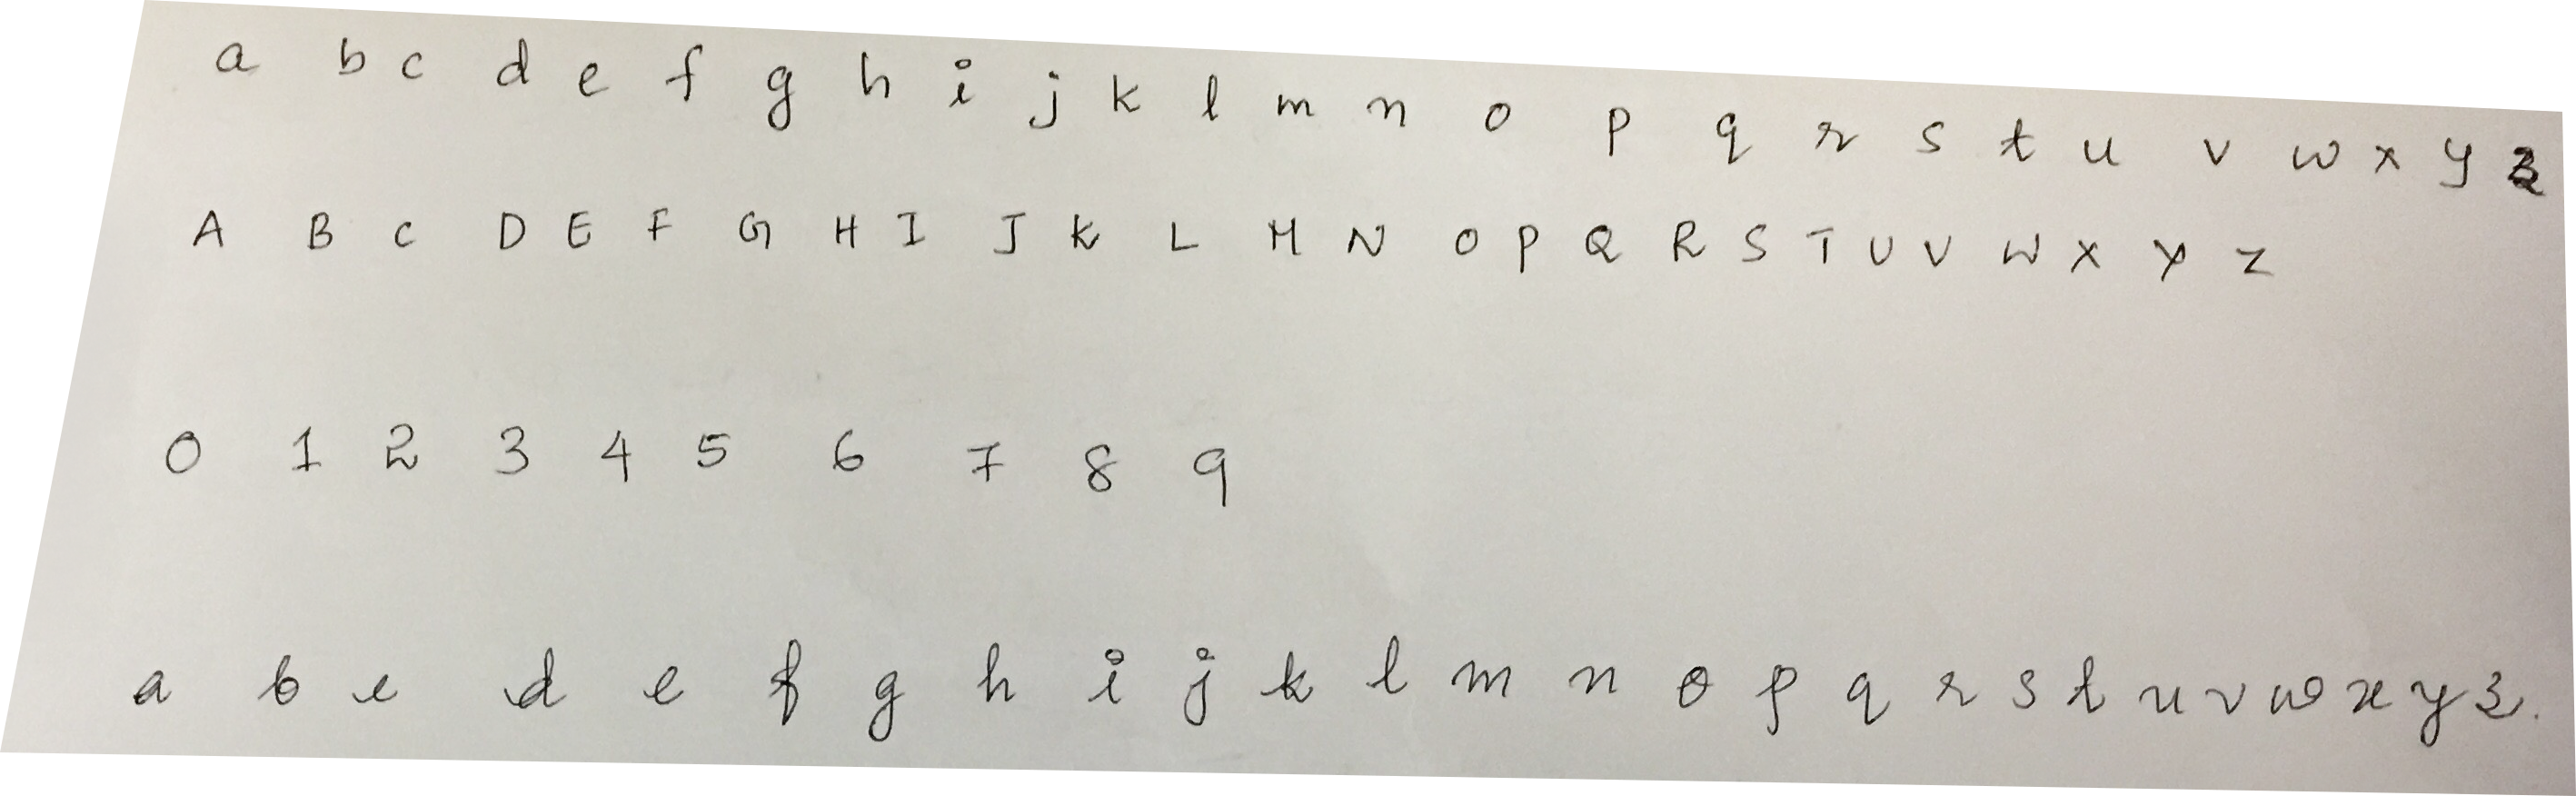 a b c d e f g h i j k l m n o p q r s t u v w x y z
A B C D E F G H I J K L M N O P Q R S T U V W X Y Z
0 1 2 3 4 5 6 7 8 9
a b c d e f g h i j k l m n o p q r s t u v w x y z.